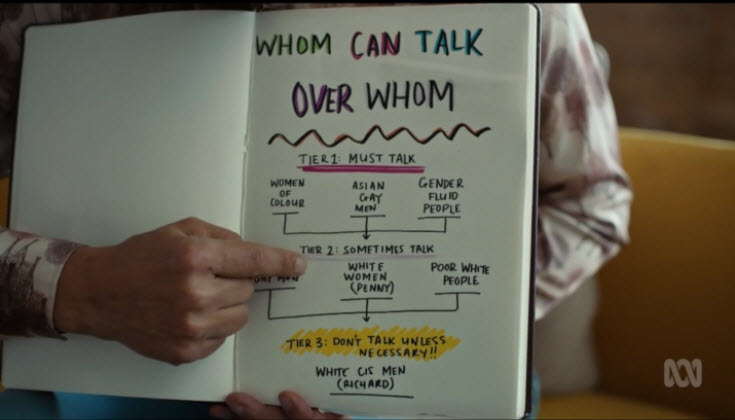 WHOM CAN TALK
OVER WHOM
TIER 1: MUST TALK
WOMEN OF COLOUR
ASIAN GAY MEN
GENDER FLUID PEOPLE
TIER 2: SOMETIMES TALK
GAY MEN
WHITE WOMEN (PENNY)
POOR WHITE PEOPLE
TIER 3: DON'T TALK UNLESS
NECESSARY!!
WHITE CIS MEN
(RICHARD)